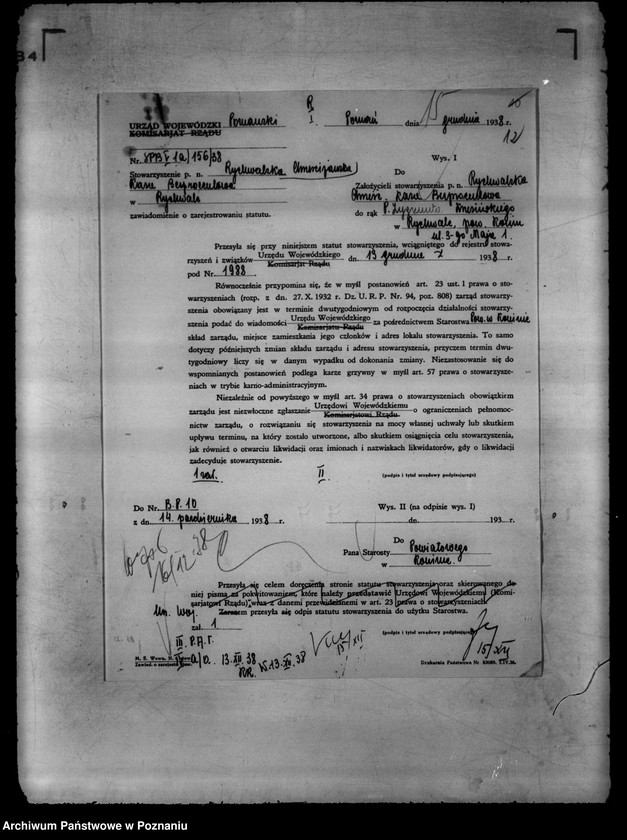 URZĄD WOJEWÓDZKI Poznański Poznań dnia 15 grudnia 1938 r.
KOMISARJAT RZĄDU
12
Nr. 1a/156/38
Wys. I
Stowarzyszenie p. n. Rychwalska Chrześcijańska
Kasa Bezprocentowa
w Rychwale
zawiadomienie o zarejestrowaniu statutu.
Do
Założycieli stowarzyszenia p. n. Rychwalska
Chrześc. Kasa Bezprocentowa
do rąk P. Zygmunta
w Rychwale, pow. Konin
ul. 3-go Maja 1.
Przesyła się przy niniejszem statut stowarzyszenia, wciągniętego do rejestru stowa-
rzyszeń i związków Urzędu Wojewódzkiego dn. 13 grudnia 1938 r.
Komisarjat Rządu
pod Nr. 1988
Równocześnie przypomina się, że w myśl postanowień art. 23 ust. 1 prawa o sto-
warzyszeniach (rozp. z dn. 27. X. 1932 r. Dz. U. R. P. Nr. 94, poz. 808) zarząd stowarzy-
szenia obowiązany jest w terminie dwutygodniowym od rozpoczęcia działalności stowarzy-
szenia podać do wiadomości Urzędu Wojewódzkiego za pośrednictwem Starostwa Pow. w Koninie
Komisarjatu Rządu
skład zarządu, miejsce zamieszkania jego członków i adres lokalu stowarzyszenia. To samo
dotyczy późniejszych zmian składu zarządu i adresu stowarzyszenia, przyczem termin dwu-
tygodniowy liczy się w danym wypadku od dokonania zmiany. Niezastosowanie się do
wspomnianych postanowień podlega karze grzywny w myśl art. 57 prawa o stowarzysze-
niach w trybie karno-administracyjnym.
Niezależnie od powyższego w myśl art. 34 prawa o stowarzyszeniach obowiązkiem
zarządu jest niezwłoczne zgłaszanie Urzędowi Wojewódzkiemu o ograniczeniu pełnomoc-
Komisarjatowi Rządu.
nictw zarządu, o rozwiązaniu się stowarzyszenia na mocy własnej uchwały lub skutkiem
upływu terminu, na który zostało utworzone, albo skutkiem osiągnięcia celu stowarzyszenia,
jak również o otwarciu likwidacji oraz imionach i nazwiskach likwidatorów, gdy o likwidacji
zadecyduje stowarzyszenie.
1 zał.
II
(podpis i tytuł urzędowy podpisującego)
Do Nr. B.P. 10
z dn. 14. października 1938 r.
Wys. II (na odpisie wys. I)
dn. 193 r.
16/12.38
Do
Pana Starosty Powiatowego
w Koninie.
Przesyła się celem doręczenia stronie statutu stowarzyszenia oraz skierowanego do
niej pisma za pokwitowaniem, które należy przedstawić Urzędowi Wojewódzkiemu (Komi-
sarjatowi Rządu), wraz z danemi przewidzianemi w art. 23 prawa o stowarzyszeniach.
Zarazem przesyła się odpis statutu stowarzyszenia do użytku Starostwa.
Ur. Woj
zał. 1
(podpis i tytuł urzędowy podpisującego)
15/XII
15/XII
III.
a/a. 13.XII.38
13.XII.38
M. S. Wewn. N.
Zawiad. o zarejestr.
Drukarnia Państwowa Nr
Archiwum Państwowe w Poznaniu